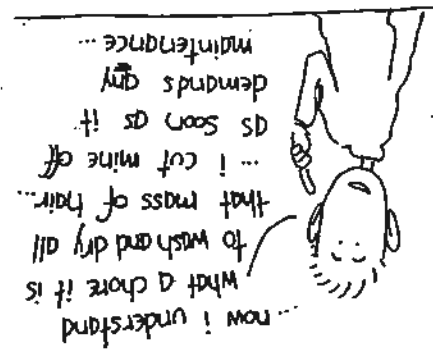 ...now i understand
what a chore it is
to wash and dry all
that mass of hair...
... i cut mine off
as soon as it
demands any
maintenance ...